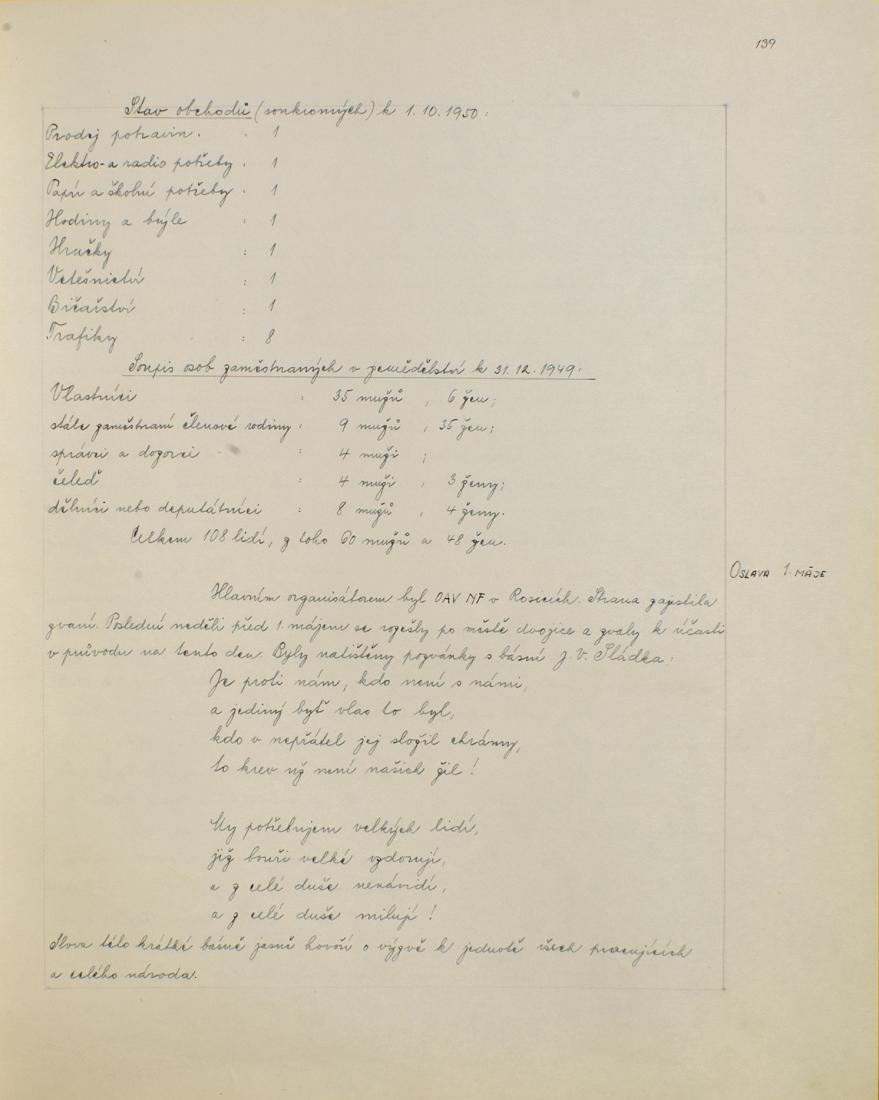 139
Stav obchodů (soukromých) k 1.10.1950:
Prodej potravin : 1
Elektro- a radio potřeby : 1
Papír a školní potřeby : 1
Hodiny a brýle : 1
Hračky : 1
Vetešnictví : 1
Bičařství : 1
Trafiky : 8
Soupis osob zaměstnaných v zemědělství k 31.12.1949:
Vlastníci : 35 mužů , 6 žen;
stále zaměstnaní členové rodiny : 9 mužů , 35 žen;
správci a dozorci : 4 muži ;
čeleď : 4 muži , 3 ženy;
dělníci nebo deputátníci : 8 mužů , 4 ženy.
Celkem 108 lidí, z toho 60 mužů a 48 žen.
OSLAVA 1. MÁJE
Hlavním organisátorem byl OAV NF v Rosicích. Strana zajistila
zvaní. Poslední neděli před 1. májem se rozešly po městě dvojice a zvaly k účasti
v průvodu na tento den. Byly natištěny pozvánky s básní J. V. Sládka:
Je proti nám, kdo není s námi,
a jediný byť vlas to byl,
kdo v nepřátel jej složil chrámy,
to krev už není našich žil!
My potřebujem velkých lidí,
již bouři velké vzdorují,
a z celé duše nenávidí,
a z celé duše milují!
Slova této krátké básně jasně hovoří o výzvě k jednotě všech pracujících
a celého národa.